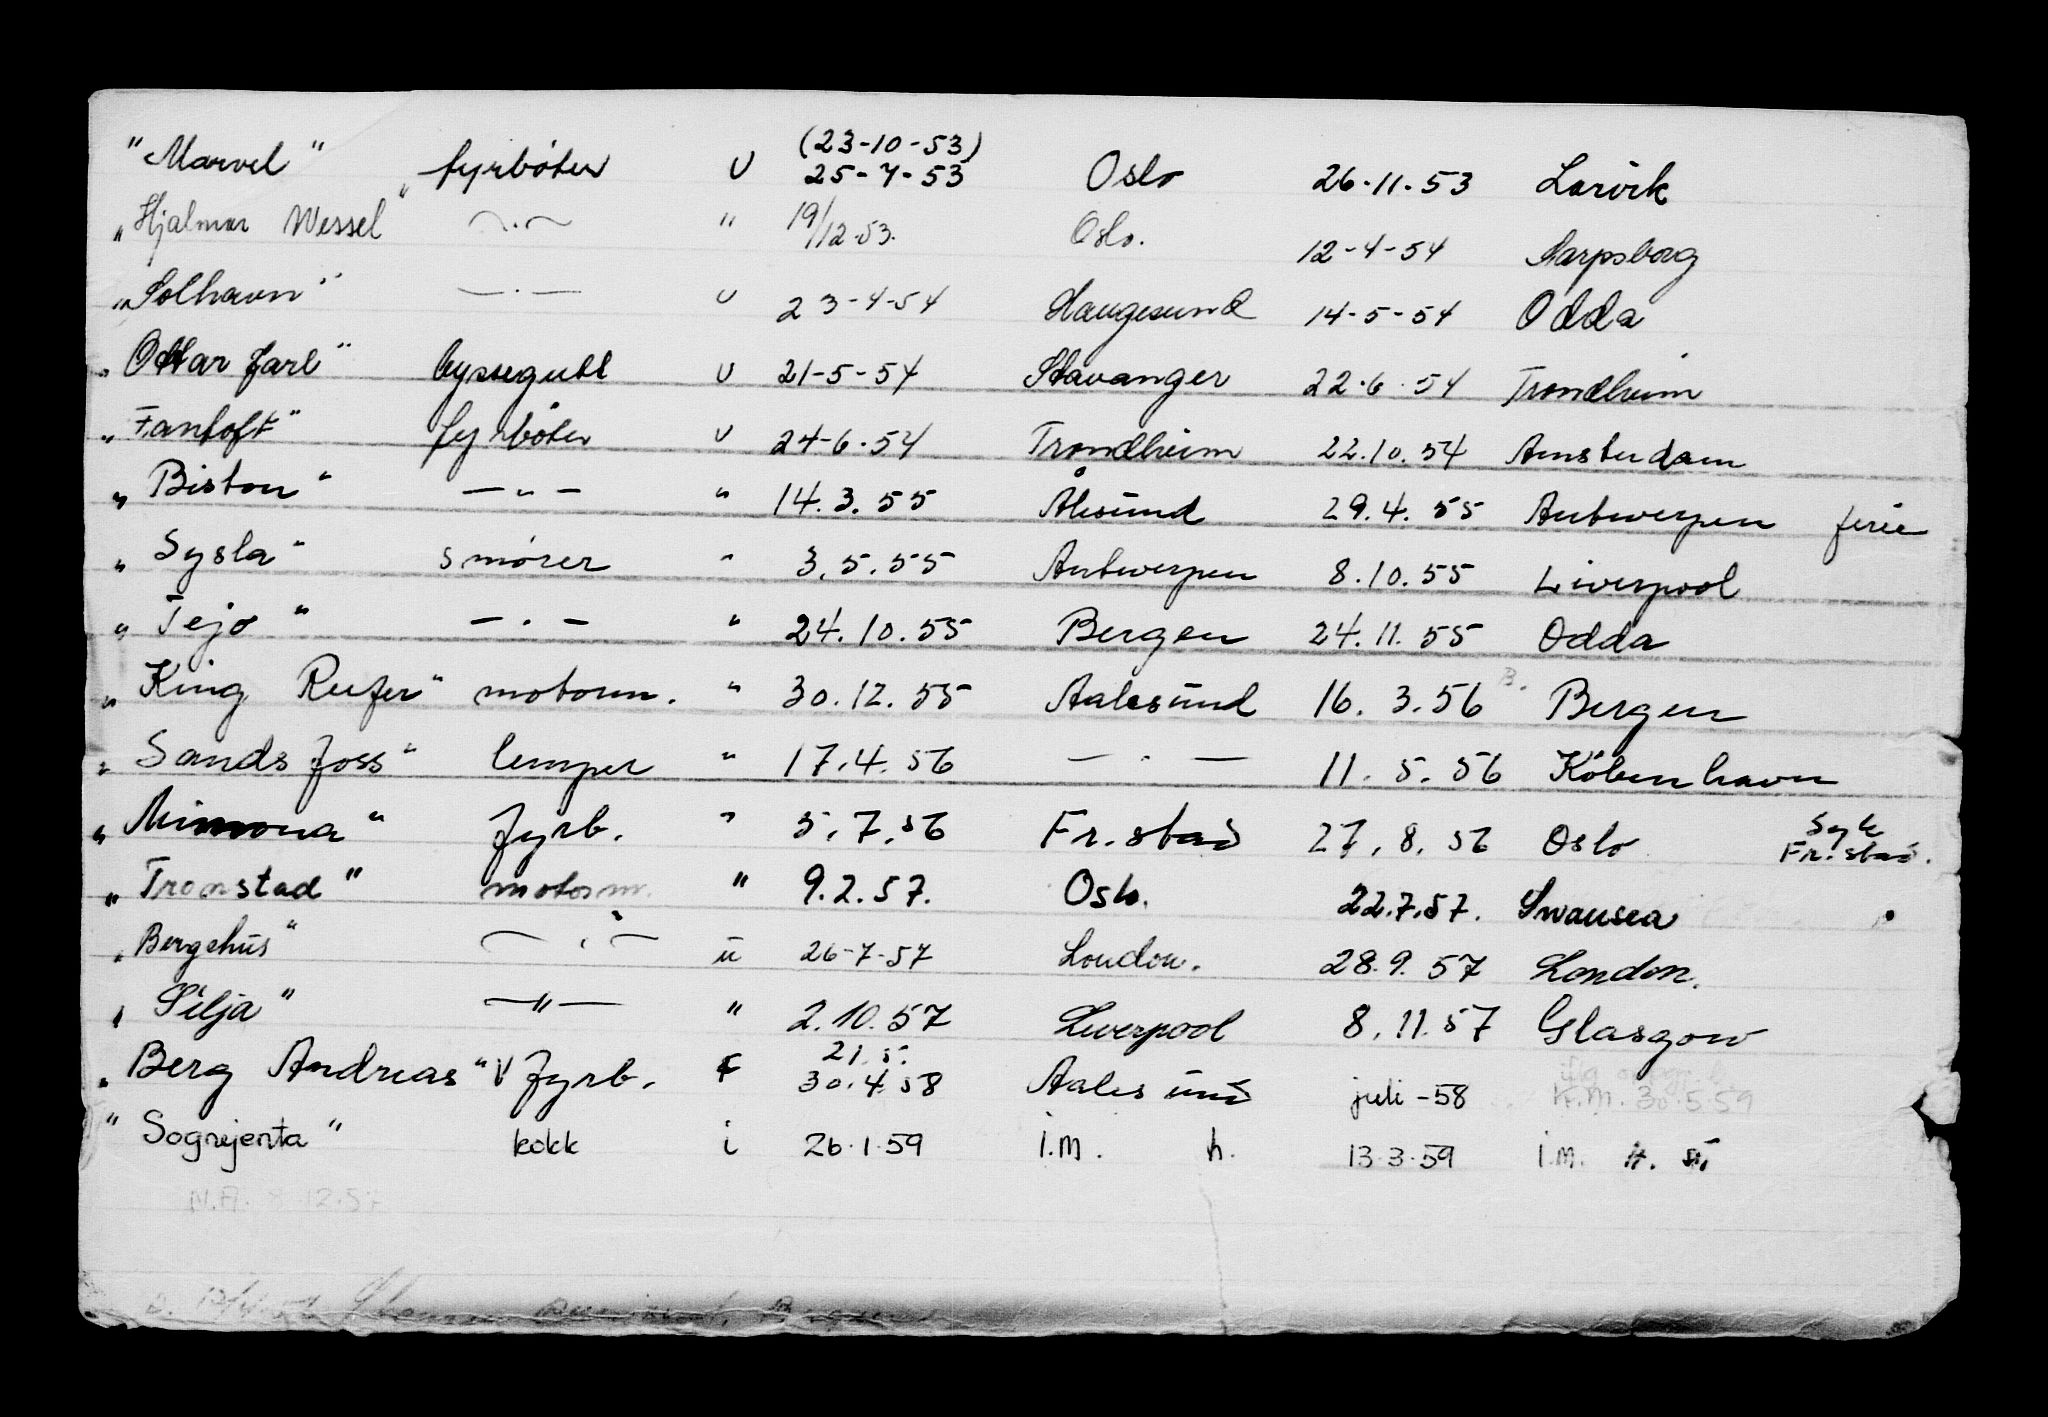 (23-10-53)
"Marvel" fyrbøter U 25-7-53 Oslo 26-11-53 Larvik
"Hjalmar Wessel" —·— " 19/12-53. Oslo. 12-4-54 Sarpsborg
"Solhavn" —·— U 23-4-54 Haugesund 14-5-54 Odda
"Ottar Jarl" byssegutt U 21-5-54 Stavanger 22-6-54 Trondheim
"Fantoft" fyrbøter U 24-6-54 Trondheim 22.10.54 Amsterdam
"Biston" —"— " 14.3.55 Ålesund 29.4.55 Antwerpen ferie
"Sysla" smører " 3.5.55 Antwerpen 8.10.55 Liverpool
"Tejo" —·— " 24.10.55 Bergen 24.11.55 Odda
"King Rufer" motorm. " 30.12.55 Aalesund 16.3.56 Bergen
"Sandsfoss" lemper " 17.4.56 —·— 11.5.56 København
"Mimona" fyrb. " 5.7.56 Fr.stad 27.8.56 Oslo Syk Fr.stad.
"Tronstad" motorm. " 9.2.57. Oslo. 22.7.57. Swansea
"Bergehus" —·— u 26-7-57 London. 28.9.57 London.
"Silja" —"— " 2.10.57 Liverpool 8.11.57 Glasgow
21.5.
"Berg Andreas" V fyrb. 30.4.58 Aalesund juli-58 K.M. 30.5.59
"Sognejenta" kokk i 26.1.59 i.m. h. 13.3.59 i.m.
N.A. 8.12.57